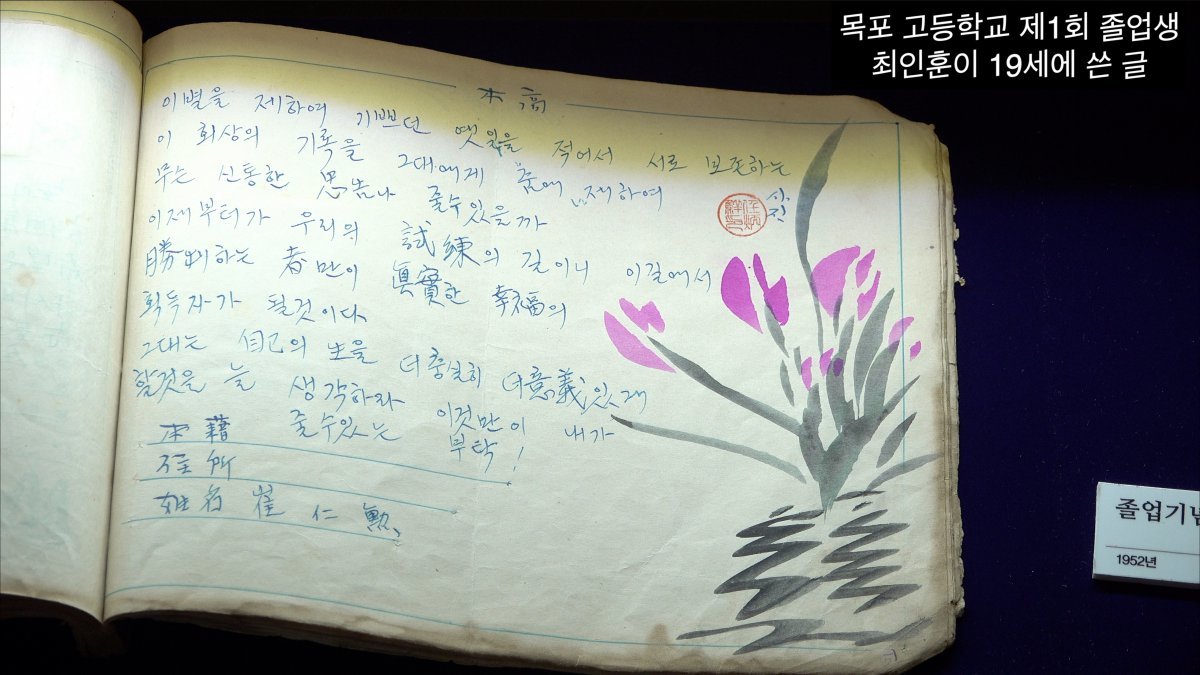 목포 고등학교 제1회 졸업생
최인훈이 19세에 쓴 글
木高
이별을 제하여 기쁘던 옛일을 적어서 서로 보존하는
이 회상의 기록을 그대에게 춤에 제하여
무슨 신통한 思告나 줄수있을까
이제부터가 우리의 試練의 길이니 이길에서
勝利하는 者만이 眞實한 幸福의
획득자가 될것이다.
그대는 自己의 生을 더충실히 더意義있게
할것을 늘 생각하라 이것만이 내가
줄수있는 부탁!
本籍
住所
姓名 崔仁勲
졸업기념
1952년